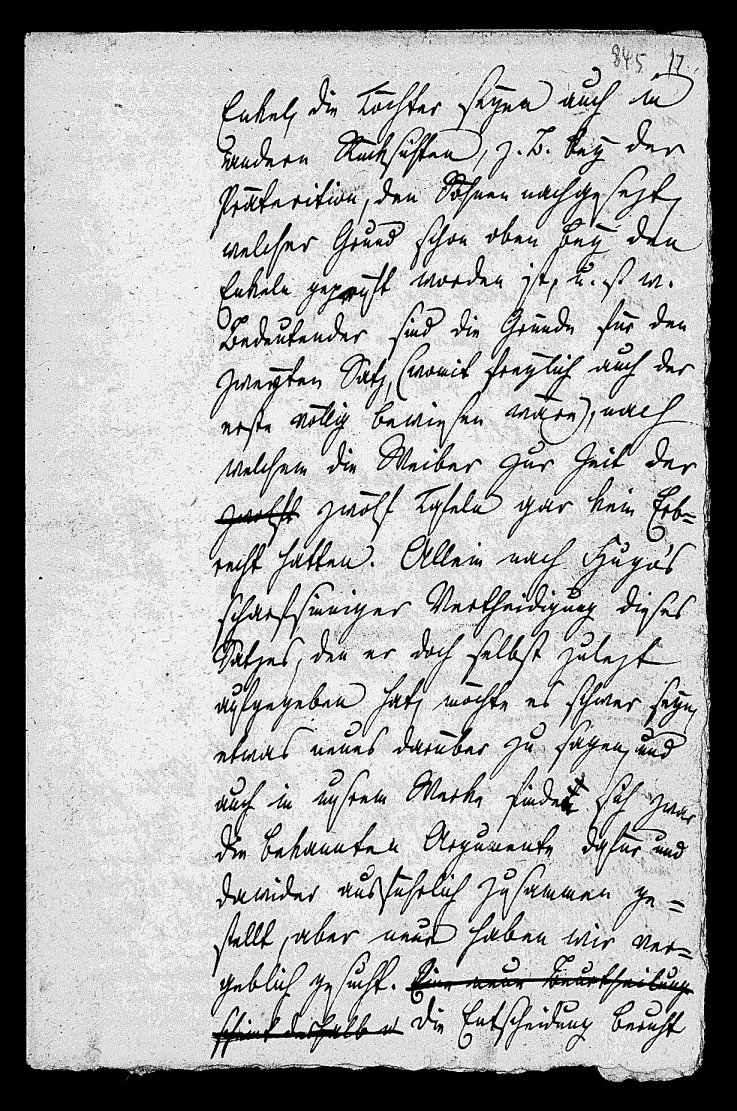 845 17
Enkel, die Töchter seyen auch in
andern Rücksichten, z. B. bey der
Präterition, den Söhnen nachgesezt,
welcher Grund schon oben bey den
Enkeln geprüft worden ist, u. s. w.
Bedeutender sind die Gründe für den
zweyten Satz, (womit freylich auch der
erste völlig bewiesen wäre), nach
welchem die Weiber zur Zeit der
zwölf zwölf Tafeln gar kein Erb=
recht hatten. Allein nach Hugo's
scharfsinniger Vertheidigung dieses
Satzes, den er doch selbst zulezt
aufgegeben hat, möchte es schwer seyn,
etwas neues darüber zu sagen, und
auch in unsrem Werke findet sich zwar
die bekannten Argumente dafür und
dawider ausführlich zusammen ge=
stellt, aber neue haben wir ver=
geblich gesucht. Eine neue Beurtheilung
scheint deshalb Die Entscheidung beruht